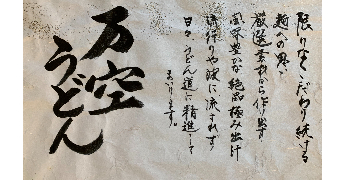 限りなくこだわり続ける
麺への思い
厳選素材から作り出す
風味豊かな絶品極み出汁
流行りや味に流されず
日々うどん道に精進して
まいります。
万空
うどん